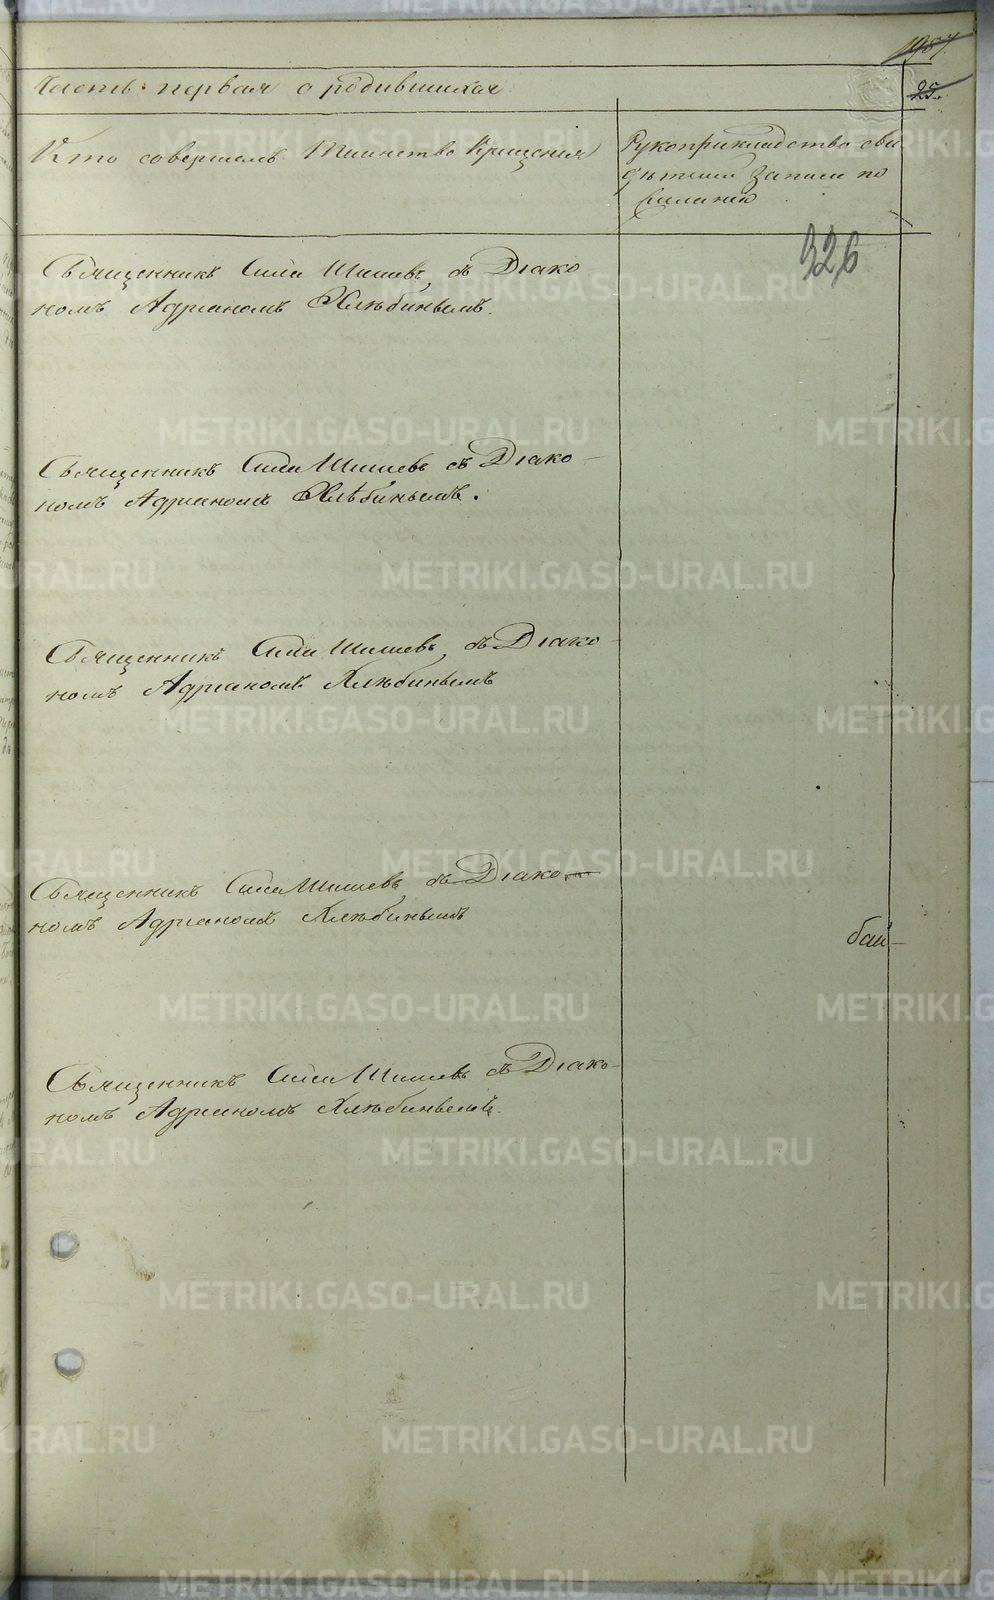 1987.
Часть первая о родившихся
25.
Кто совершалъ Таинство Крещенія
Рукоприкладство сви
дѣтелей записи по
желанію
326
Священникъ Сила Шишевъ съ Діако
номъ Адріаномъ Хлѣбинымъ.
Священникъ Сила Шишевъ съ Діако-
номъ Адріаномъ Хлѣбинымъ.
Священникъ Сила Шишевъ съ Діако-
номъ Адріаномъ Хлѣбинымъ
Священникъ Сила Шишевъ съ Діако
номъ Адріаномъ Хлѣбинымъ
бай-
Священникъ Сила Шишевъ съ Діако-
номъ Адріаномъ Хлѣбинымъ.
METRIKI.GASO-URAL.RU